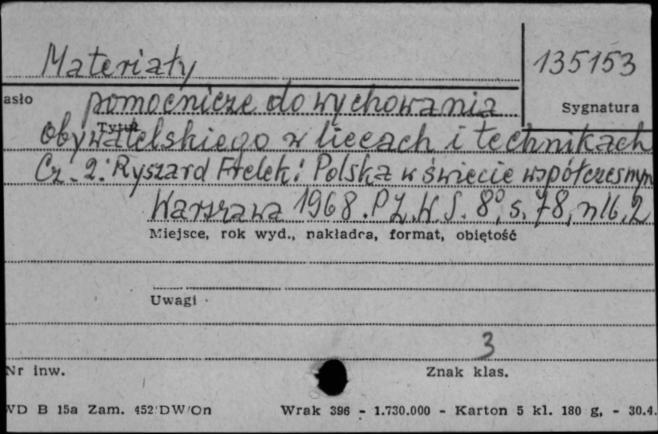 Materiały 135153
asło pomocnicze do wychowania Sygnatura
Tytuł
obywatelskiego w liceach i technikach
Cz. 2: Ryszard Frelek: Polska w świecie współczesnym
Warszawa 1968. PZWS. 8°, s. 78, nlb. 2
Miejsce, rok wyd., nakładca, format, objętość
Uwagi
3
Nr inw. Znak klas.
WD B 15a Zam. 452/DW/On Wrak 396 - 1.730.000 - Karton 5 kl. 180 g, - 30.4.